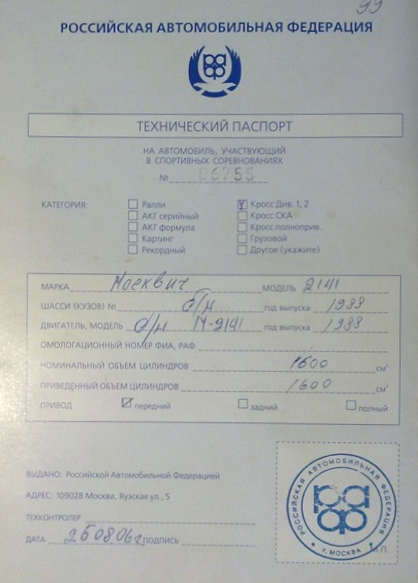 99
РОССИЙСКАЯ АВТОМОБИЛЬНАЯ ФЕДЕРАЦИЯ
ТЕХНИЧЕСКИЙ ПАСПОРТ
НА АВТОМОБИЛЬ, УЧАСТВУЮЩИЙ
В СПОРТИВНЫХ СОРЕВНОВАНИЯХ
№ 06755
КАТЕГОРИЯ: Ралли Кросс Див. 1, 2
АКГ серийный Кросс СКА
АКГ формула Кросс полноприв.
Картинг Грузовой
Рекордный Другое (укажите)
МАРКА Москвич МОДЕЛЬ 2141
ШАССИ (КУЗОВ) № б/н год выпуска 1988
ДВИГАТЕЛЬ, МОДЕЛЬ б/н М-2141 год выпуска 1988
ОМОЛОГАЦИОННЫЙ НОМЕР ФИА, РАФ
НОМИНАЛЬНЫЙ ОБЪЕМ ЦИЛИНДРОВ 1600 см³
ПРИВЕДЕННЫЙ ОБЪЕМ ЦИЛИНДРОВ 1600 см³
ПРИВОД передний задний полный
ВЫДАНО: Российской Автомобильной Федерацией
АДРЕС: 109028 Москва, Яузская ул., 5
ТЕХКОНТРОЛЕР
ДАТА 250806г ПОДПИСЬ М.П.
РОССИЙСКАЯ АВТОМОБИЛЬНАЯ ФЕДЕРАЦИЯ
г. МОСКВА